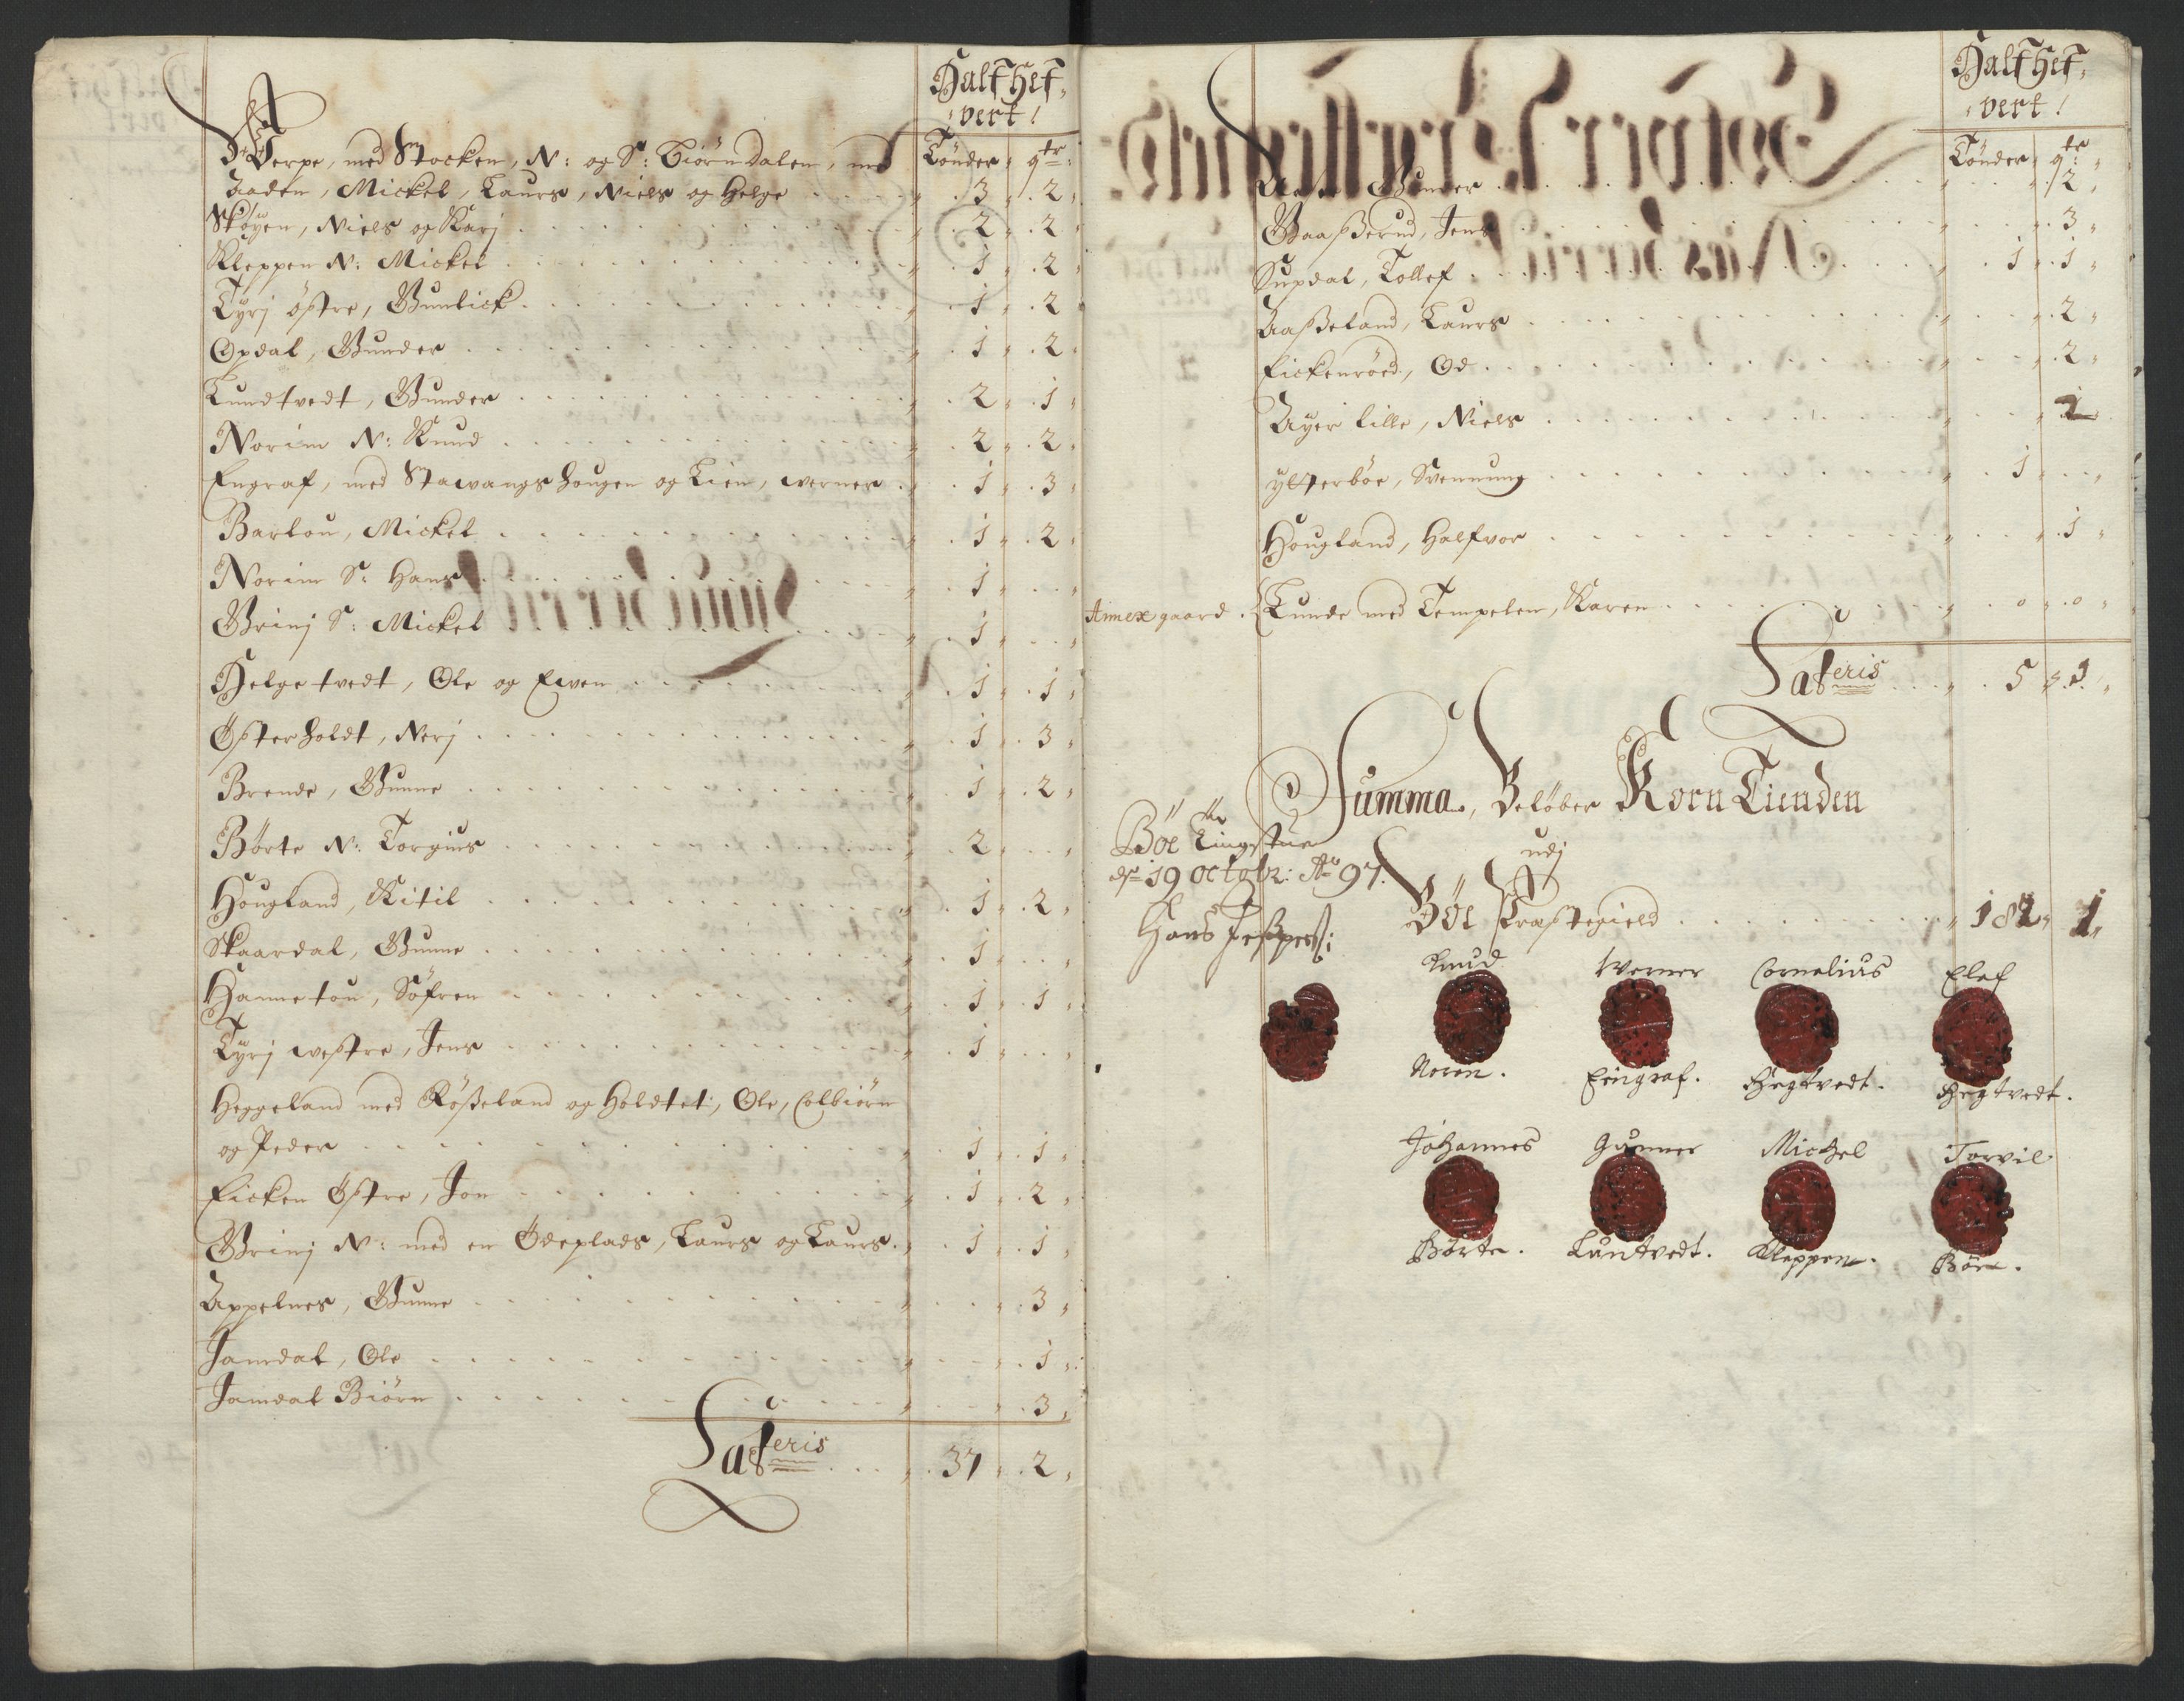 Half hef-
vert /
Tönder qtr
Verpe, med Stocken, N: og S: Biörndalen, med
Zaden, Mickel, Laurs, Niels og Helge 3 2
Skøyen, Niels og Karj 2 2
Kleppen N: Mickel 1 2
Tyrj östre, Gunlick 1 2
Opdal, Gunder 1 2
Lundtvedt, Gunder 2 1
Norim N: Knud 2 2
Engraf, med Stavangs hougen og Lien, werner 1 3
Barlou, Mickel 1 2
Norim S: Hans 1
Grinj S: Mickel 1
Helgetvedt, Ole og Ewen 1 1
Österholdt, Nerj 1 3
Brende, Gunne 1 2
Börte N: Torgius 2
Hougland, Kitil 1 2
Skaardal, Gunne 1
Hannetou, Söfren 1 1
Tyrj westre, Jens 1
Heggeland med Rößeland og Holdtet, Ole, Colbiörn
og Peder 1 1
Eicken Östre, Jon 1 2
Grinj N: med en Ödeplads, Laurs og Laurs 1 1
Appelnes, Gunne 3
Jamdal, Ole 1
Jamdal Biörn 3
Lateris 37 2
Half hef-
vert /
Tönder qtr
Gunder 2
Gaaßerud, Jens 3
Supdal, Tollef 1 1
Aaßeland, Laurs 2
Eickenröed, Od 2
Ayer lille, Niels 1
ytterböe, Svennung 1
Hougland, Halfvor 1
Annex gaard. Lunde med Tempelen, Karen 0 0
Lateris 5 1
Summa, Beløber Korn Tienden
udj
Böe Præstegield 182 1
Böe Tingstue
d. 19 octobr: Ao 97.
Hans Jeßperß:
Knud Werner Cornelius Elef
Noren. Eingraf. Hegtvedt. Hegtvedt.
Johannes Gunner Michel Torvil
Börte. Luntvedt. Kleppen. Böe.